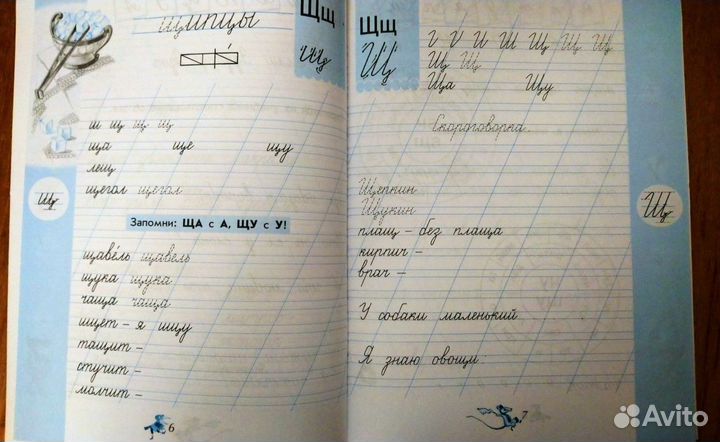 щипцы
Щщ
Щщ
ш щ щ щ
ща ще щу
лещ
щегол щегол
Щ
Запомни: ЩА с А, ЩУ с У!
щаве́ль щавель
щука щука
чаща чаща
ищет – я ищу
тащит –
стучит –
молчит –
6
Щщ
Щ
и Ш Щ Щ Щ
Щ Щ
Ща Щу
Скороговорка.
Щепкин
Щукин
плащ – без плаща
кирпич –
врач –
Щ
У собаки маленький
Я знаю овощи
7
Avito